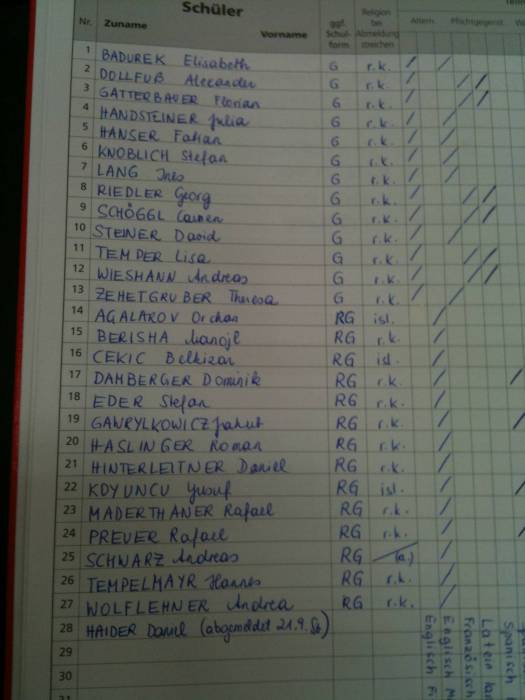 Schüler
Nr. Zuname Vorname ggf. Schul-form Religion bei Abmeldung streichen Altern. Pflichtgegenst.
1 BADUREK Elisabeth G r.k.
2 DOLLFUß Alexander G r.k.
3 GATTERBAUER Florian G r.k.
4 HANDSTEINER Julia G r.k.
5 HANSER Fabian G r.k.
6 KNOBLICH Stefan G r.k.
7 LANG Ines G r.k.
8 RIEDLER Georg G r.k.
9 SCHÖGGL G r.k.
10 STEINER David G r.k.
11 TEMPER Lisa G r.k.
12 WIESMANN Andreas G r.k.
13 ZEHETGRUBER Theresa G r.k.
14 AGALAROV Orchan RG isl.
15 BERISHA RG r.k.
16 CEKIC RG isl.
17 DAMBERGER Dominik RG r.k.
18 EDER Stefan RG r.k.
19 GAWRYLKOWICZ Jakub RG r.k.
20 HASLINGER Roman RG r.k.
21 HINTERLEITNER Daniel RG r.k.
22 KOYUNCU Yusuf RG isl.
23 MADERTHANER Rafael RG r.k.
24 PREUER Rafael RG r.k.
25 SCHWARZ Andreas RG
26 TEMPELMAYR Hannes RG r.k.
27 WOLFLEHNER Andrea RG r.k.
28 HAIDER Daniel (abgemeldet 21.9.
29
30
31
Englisch
Englisch
Französisch
Latein
Spanisch